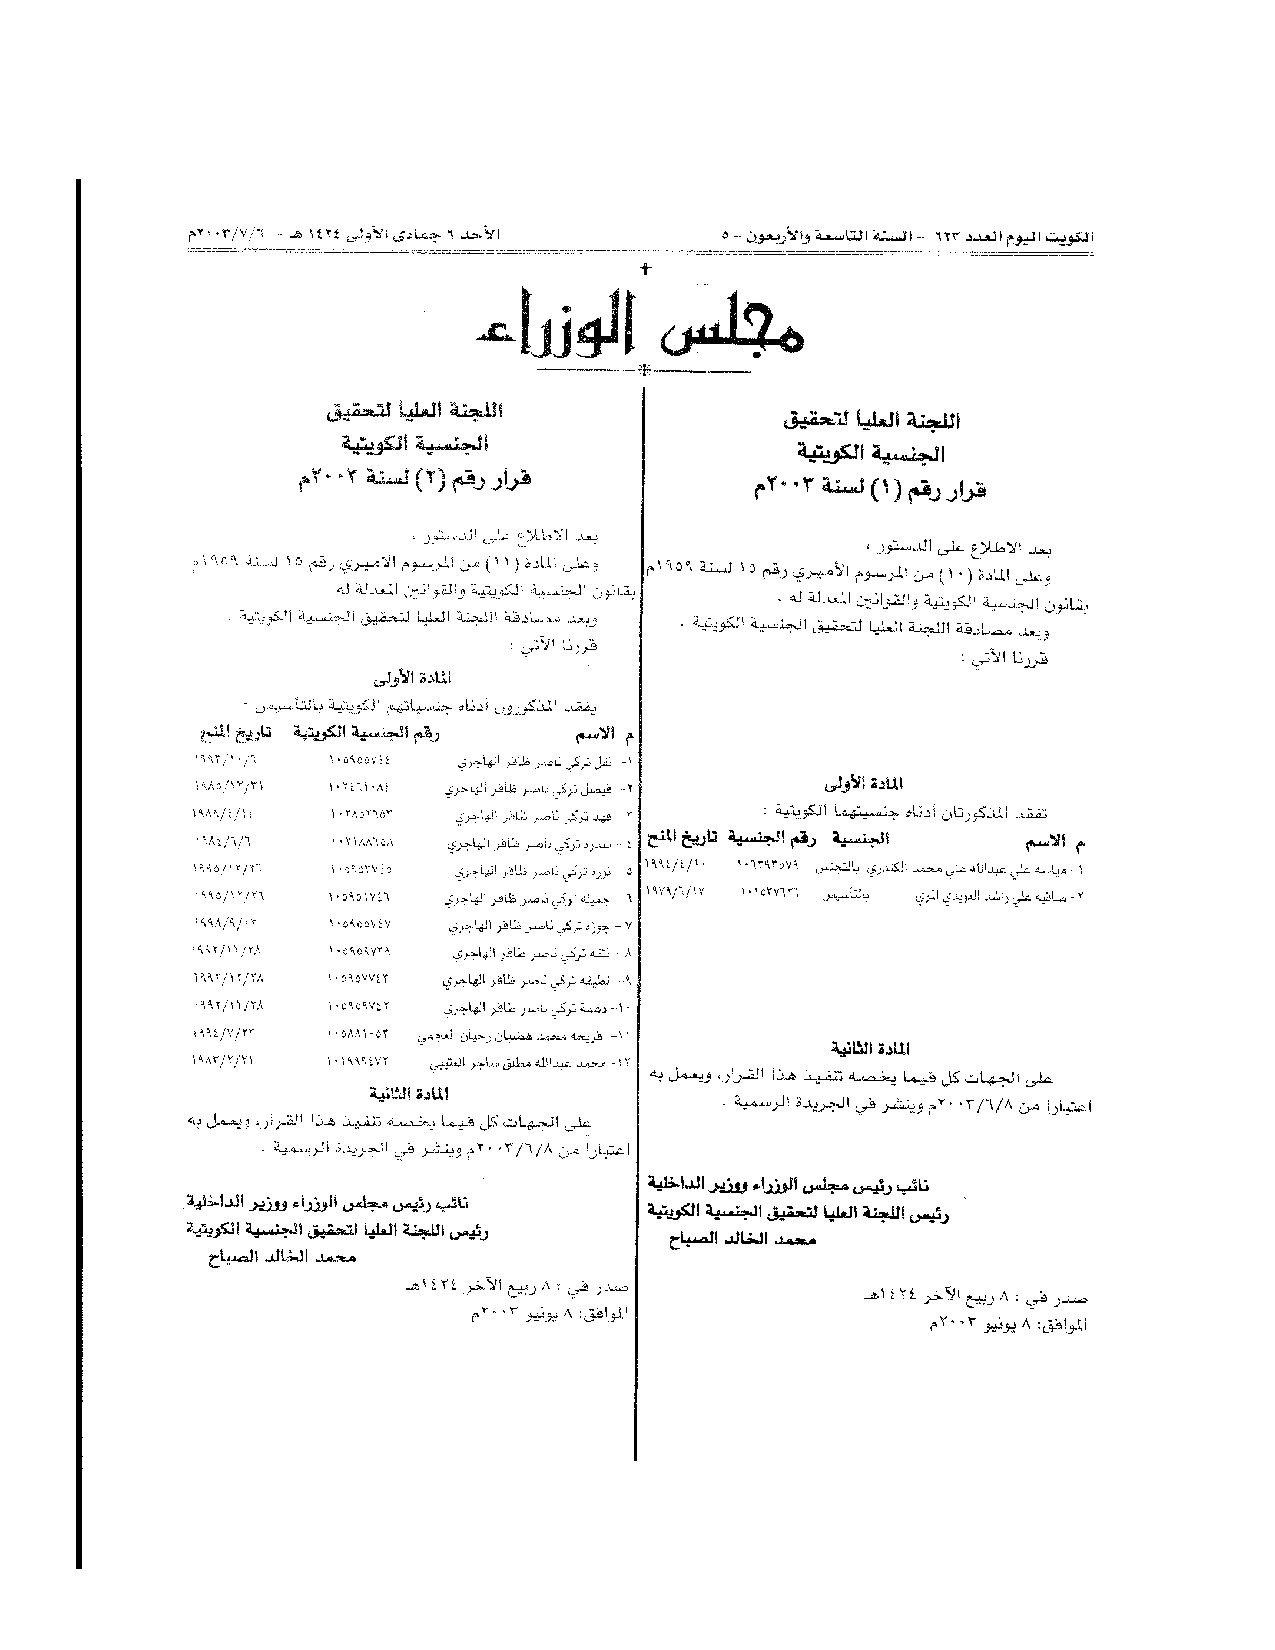 الكويت اليوم العدد ٦٢٣ - السنة التاسعة والأربعون - ٥
الأحد ٦ جمادى الأولى ١٤٢٤ هـ - ٢٠٠٣/٧/٦م
مجلس الوزراء
اللجنة العليا لتحقيق
الجنسية الكويتية
قرار رقم (١) لسنة ٢٠٠٣م
بعد الاطلاع على الدستور ،
وعلى المادة (١٠) من المرسوم الأميري رقم ١٥ لسنة ١٩٥٩م
بقانون الجنسية الكويتية والقوانين المعدلة له .
وبعد مصادقة اللجنة العليا لتحقيق الجنسية الكويتية .
قررنا الآتي :
المادة الأولى
تفقد المذكورتان أدناه جنسيتهما الكويتية :
م الاسم الجنسية رقم الجنسية تاريخ المنح
١- علي عبدالله علي محمد الكندري بالتجنس ١٩٩٤/٤/١٠
٢- علي راشد المري بالتأسيس ١٩٧٩/٦/١٧
المادة الثانية
على الجهات كل فيما يخصه تنفيذ هذا القرار، ويعمل به
اعتبارا من ٢٠٠٣/٦/٨م وينشر في الجريدة الرسمية .
نائب رئيس مجلس الوزراء ووزير الداخلية
رئيس اللجنة العليا لتحقيق الجنسية الكويتية
محمد الخالد الصباح
صدر في : ٨ ربيع الآخر ١٤٢٤هـ
الموافق: ٨ يونيو ٢٠٠٣م
اللجنة العليا لتحقيق
الجنسية الكويتية
قرار رقم (٢) لسنة ٢٠٠٣م
بعد الاطلاع على الدستور ،
وعلى المادة (١١) من المرسوم الاميري رقم ١٥ لسنة ١٩٥٩م
بقانون الجنسية الكويتية والقوانين المعدلة له
وبعد مصادقة اللجنة العليا لتحقيق الجنسية الكويتية .
قررنا الآتي :
المادة الأولى
يفقد المذكورون أدناه جنسياتهم الكويتية بالتأسيس :
م الاسم رقم الجنسية الكويتية تاريخ المنح
١- تركي ناصر ظافر الهاجري ١٠٥٩٥٥٧٤٤ ١٩٩٣/١٠/٦
٢- فيصل تركي ناصر ظافر الهاجري ١٩٨٥/١٢/٣١
٣- فهد تركي ناصر ظافر الهاجري
٤- تركي ناصر ظافر الهاجري
٥- نوره تركي ناصر ظافر الهاجري
٦- جميله تركي ناصر ظافر الهاجري ١٠٥٩٥١٧٤٦
٧- جوزه تركي ناصر ظافر الهاجري
٨- تركي ناصر ظافر الهاجري ١٩٩٢/١١/٢٨
٩- لطيفه تركي ناصر ظافر الهاجري ١٠٥٩٥٧٧٤٣
١٠- تركي ناصر ظافر الهاجري ١٩٩٢/١١/٢٨
فريحه محمد العجمي ١٩٩٤/٧/٢٣
١٢- محمد عبدالله مطلق العتيبي
المادة الثانية
على الجهات كل فيما يخصه تنفيذ هذا القرار، ويعمل به
اعتبارا من ٢٠٠٣/٦/٨م وينشر في الجريدة الرسمية .
نائب رئيس مجلس الوزراء ووزير الداخلية
رئيس اللجنة العليا لتحقيق الجنسية الكويتية
محمد الخالد الصباح
صدر في : ٨ ربيع الآخر ١٤٢٤هـ
الموافق: ٨ يونيو ٢٠٠٣م